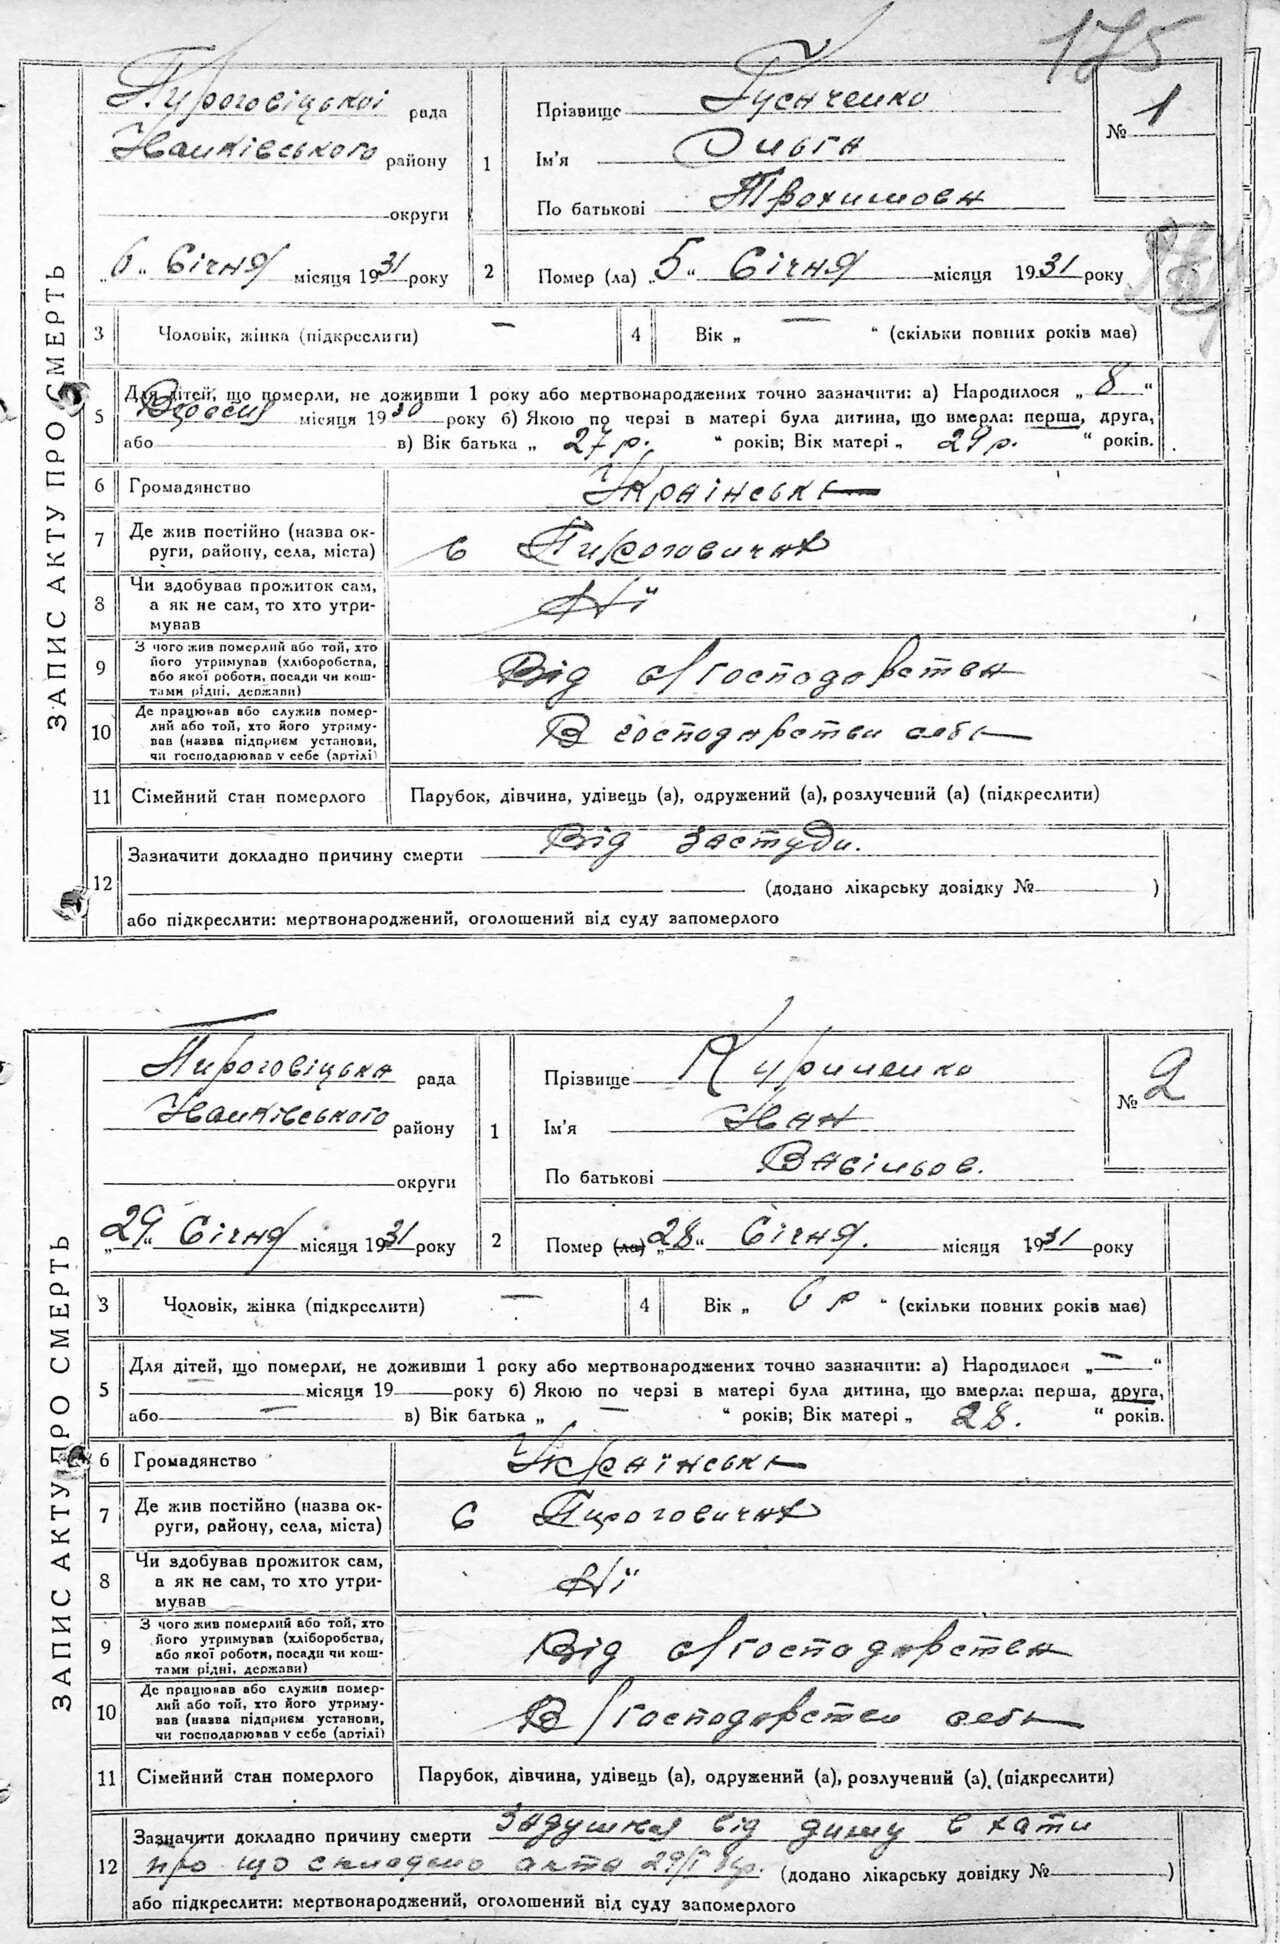 175
ЗАПИС АКТУ ПРО СМЕРТЬ
Пироговіцької рада
Іванківського району
округи
Прізвище Гусаченко
Ім'я Ольга
По батькові Трохимовн
1
№ 1
„6“ Січня місяця 1931 року
2
Помер (ла) „5“ Січня місяця 1931 року
3 Чоловік, жінка (підкреслити) —
4 Вік „ — “ (скільки повних років має)
5 Для дітей, що померли, не доживши 1 року або мертвонароджених точно зазначити: а) Народилося „8“
Вересня місяця 1930 року б) Якою по черзі в матері була дитина, що вмерла: перша, друга,
або в) Вік батька „27 р. “ років; Вік матері „29 р. “ років.
6 Громадянство Українськ
7 Де жив постійно (назва ок-
руги, району, села, міста)
с Пироговичах
8 Чи здобував прожиток сам,
а як не сам, то хто утри-
мував
Ні
9 З чого жив померлий або той, хто
його утримував (хліборобства,
або якої роботи, посади чи кош-
тами рідні, держави)
Від с/господарства
10 Де працював або служив помер-
лий або той, хто його утриму-
вав (назва підприєм установи,
чи господарював у себе (артілі)
В господарстві себь
11 Сімейний стан померлого Парубок, дівчина, удівець (а), одружений (а), розлучений (а) (підкреслити)
12 Зазначити докладно причину смерти Від застуди.
(додано лікарську довідку № )
або підкреслити: мертвонароджений, оголошений від суду запомерлого
ЗАПИС АКТУ ПРО СМЕРТЬ
Пироговіцька рада
Іванківського району
округи
Прізвище Куриленко
Ім'я Іван
По батькові Васільов.
1
№ 2
„29“ Січня місяця 1931 року
2
Помер (ла) „28“ Січня. місяця 1931 року
3 Чоловік, жінка (підкреслити) —
4 Вік „ 6 р “ (скільки повних років має)
5 Для дітей, що померли, не доживши 1 року або мертвонароджених точно зазначити: а) Народилося „—“
— місяця 19 року б) Якою по черзі в матері була дитина, що вмерла: перша, друга,
або — в) Вік батька „ — “ років; Вік матері „ 28. “ років.
6 Громадянство Українськ
7 Де жив постійно (назва ок-
руги, району, села, міста)
с Пироговичах
8 Чи здобував прожиток сам,
а як не сам, то хто утри-
мував
Ні
9 З чого жив померлий або той, хто
його утримував (хліборобства,
або якої роботи, посади чи кош-
тами рідні, держави)
Від с/господарства
10 Де працював або служив помер-
лий або той, хто його утриму-
вав (назва підприєм установи,
чи господарював у себе (артілі)
В/господарстві себь
11 Сімейний стан померлого Парубок, дівчина, удівець (а), одружений (а), розлучений (а). (підкреслити)
12 Зазначити докладно причину смерти Задушився від диму в хати
про що складено акта 29/I 31р. (додано лікарську довідку № )
або підкреслити: мертвонароджений, оголошений від суду запомерлого